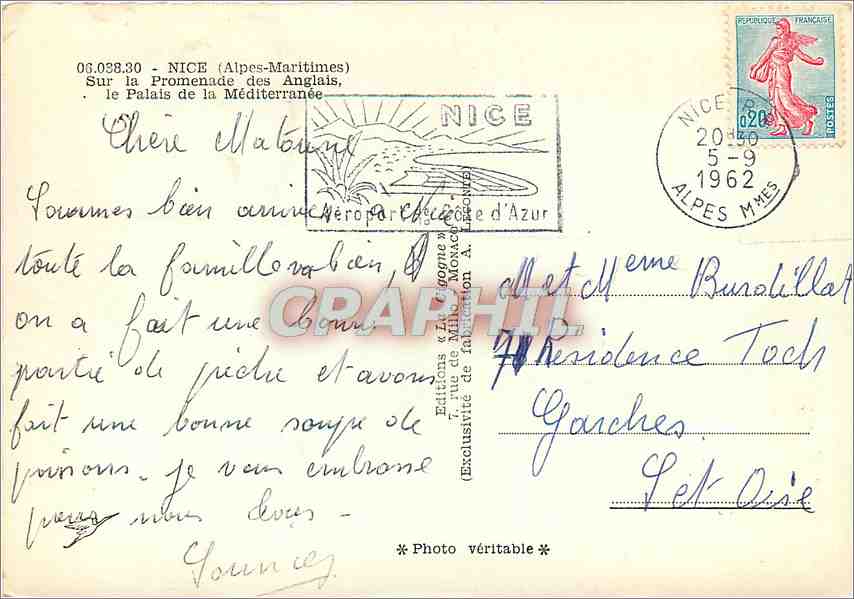 06.038.30 - NICE (Alpes-Maritimes)
Sur la Promenade des Anglais,
le Palais de la Méditerranée
Chère
Sommes bien
toute la famille va bien,
on a fait une bonne
partie de pêche et avons
fait une bonne soupe de
poissons. je vous embrasse
pour nous tous -
NICE
Aéroport de Nice Côte d'Azur
Editions « La Cigogne »
7, rue de Millo, MONACO
(Exclusivité de fabrication A. LECONTE)
REPUBLIQUE FRANÇAISE
0,20
POSTES
NICE R.P.
20H30
5 - 9
1962
ALPES MMES
M et Mme Burdillat
Résidence Foch
Garches
S et Oise
* Photo véritable *
CRAPHIL